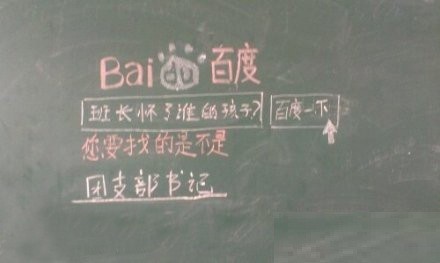 Baidu百度
班长怀了谁的孩子? 百度一下
您要找的是不是
团支部书记